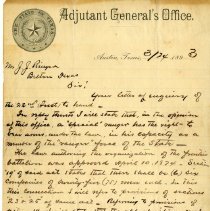 THE STATE OF TEXAS
Adjutant General's Office.
Austin, Texas, 3/24 1893
Mr J. J.
Belton Texas
Sir:
Your letter of enquiry of
the 22nd Inst to hand
In reply thereto I will state that, in the opinion
of this office, a "Special ranger" has the right to
bear arms under the law, in his capacity as a
member of the ranger force of the State
The law authorizing the organization of the frontier
battalion was approved April 10, 1874. Sec
19 of said act states that there shall be (6) six
companies of seventy-five (75) men each. In this
connection I will refer to provisions of sections
23 & 25 of same act